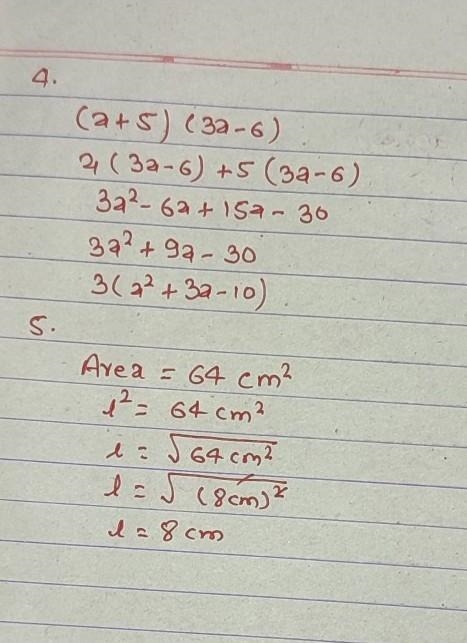 4.
(a+5) (3a-6)
a(3a-6) +5 (3a-6)
3a²- 6a + 15a - 30
3a² + 9a - 30
3(a² + 3a -10)
5.
Area = 64 cm²
l² = 64 cm²
l = √64 cm²
l = √(8cm)²
l = 8 cm